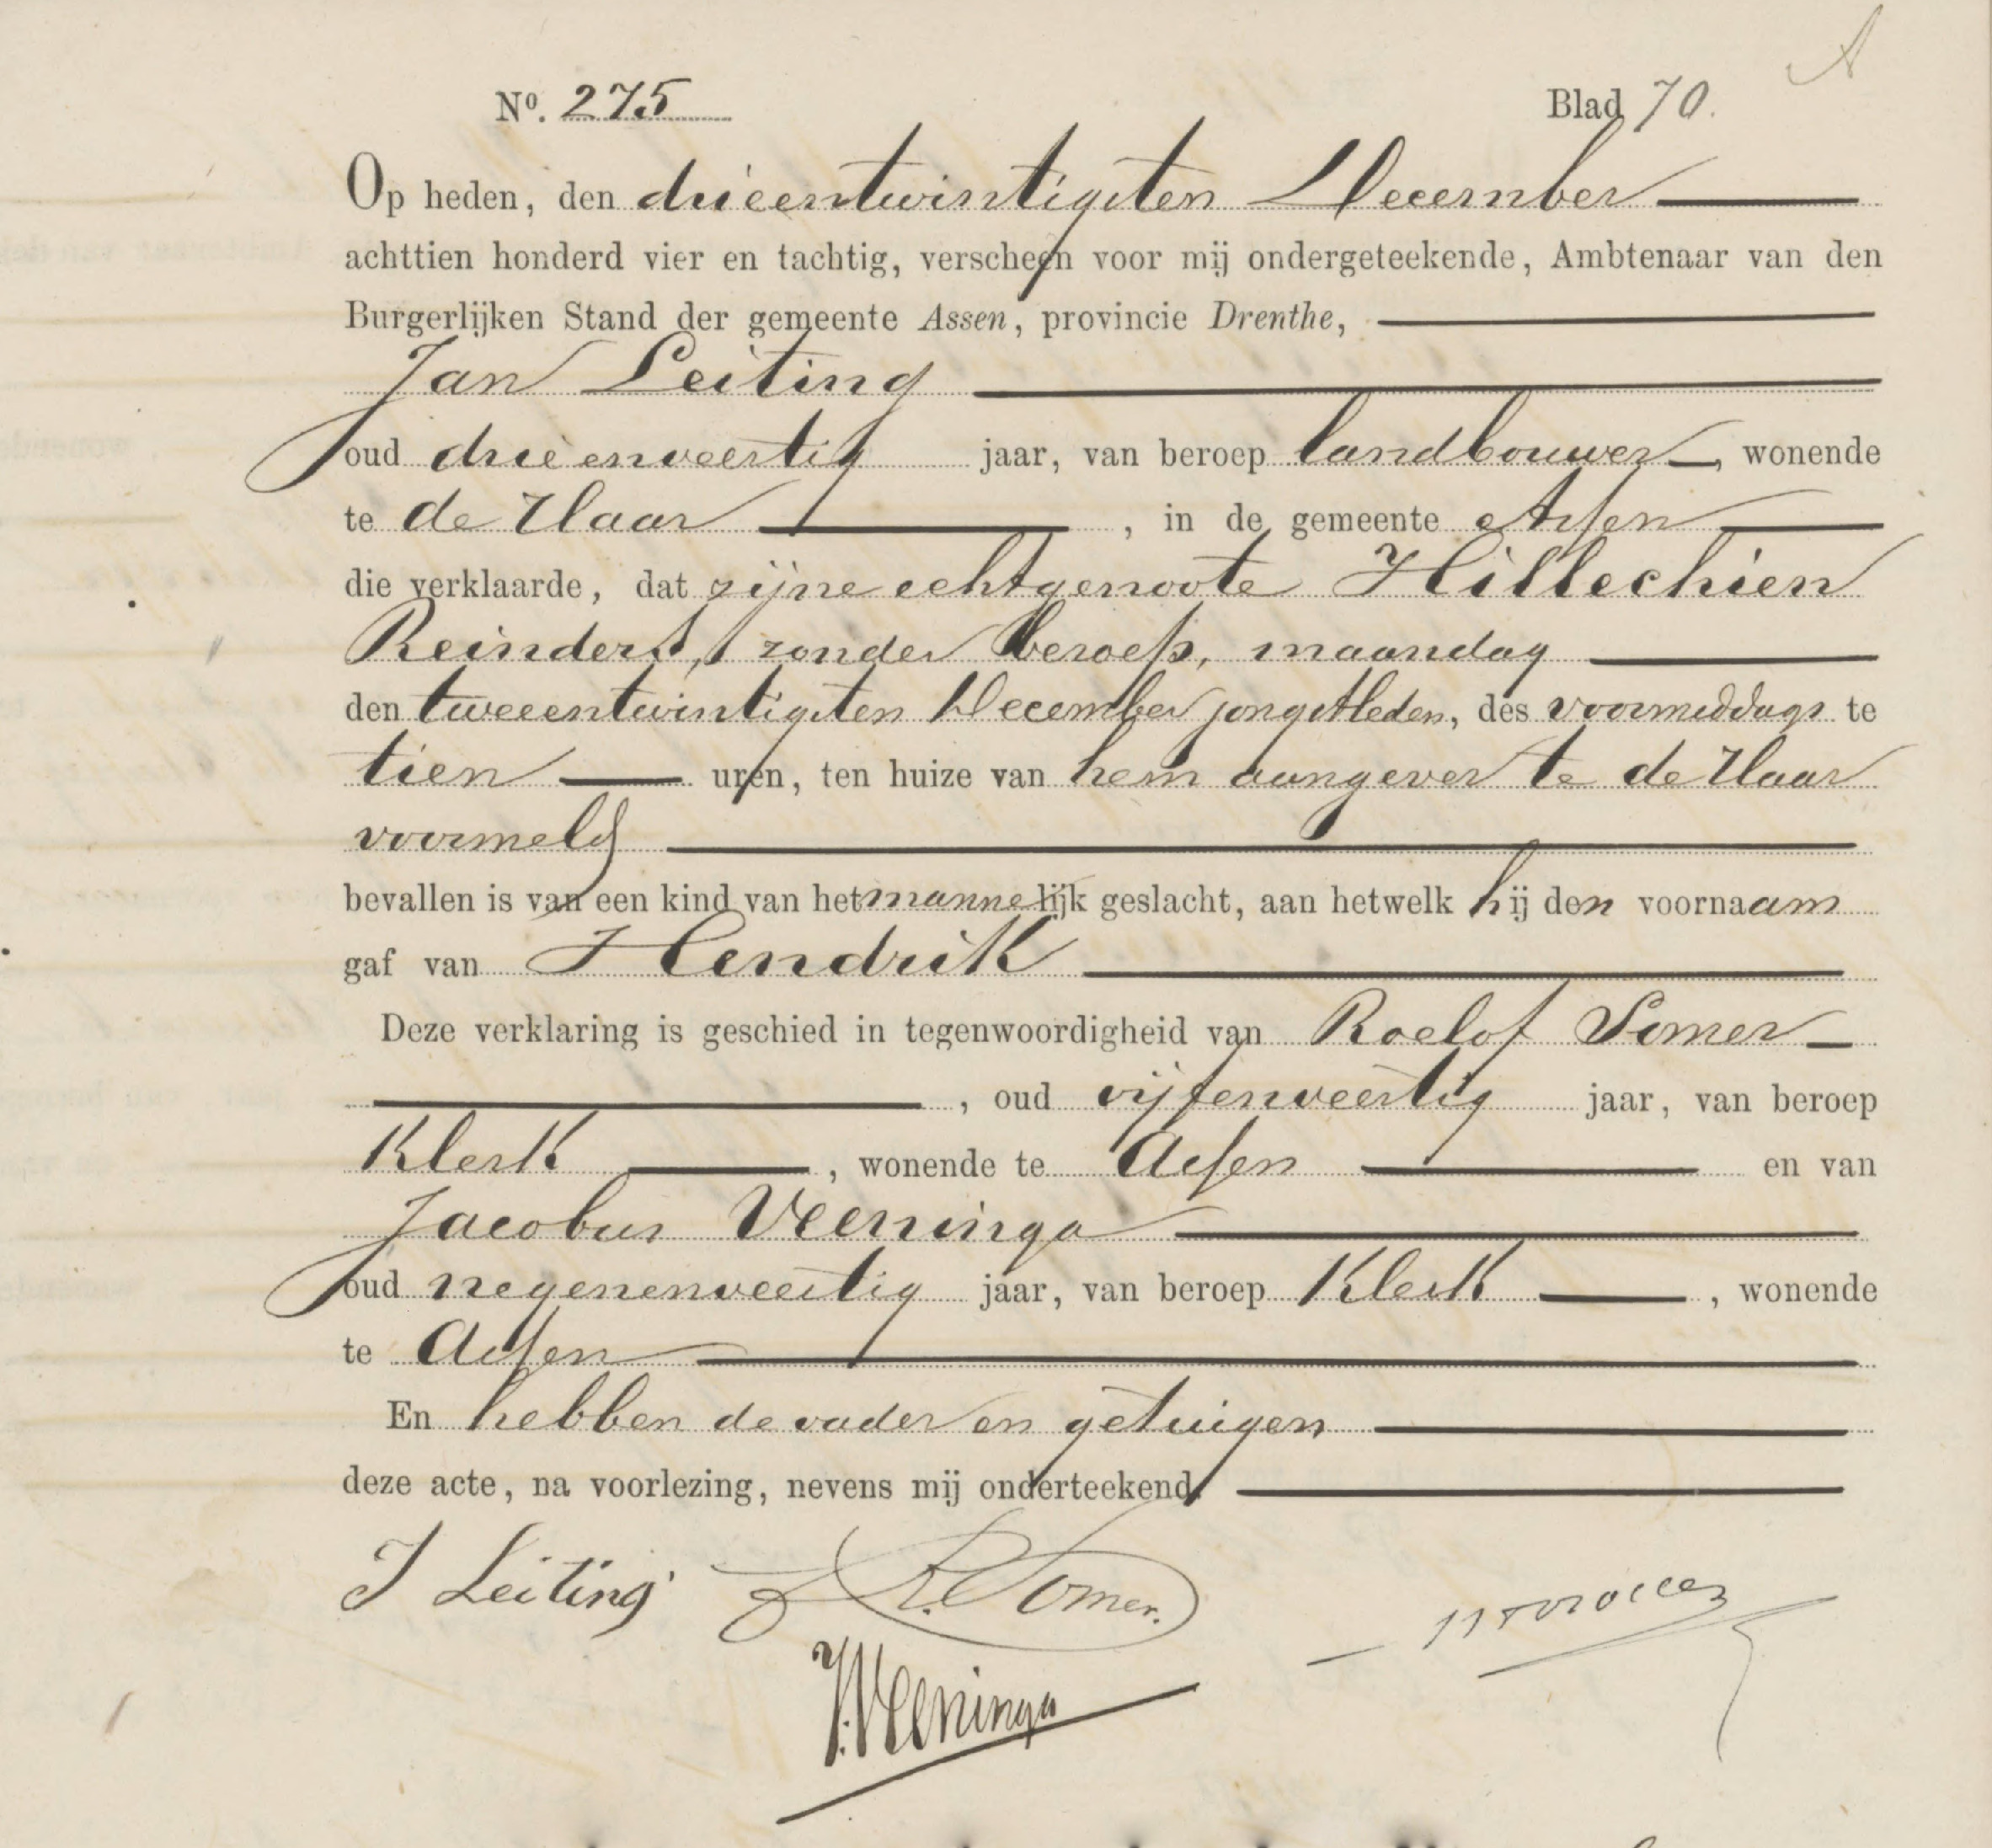 A
Nº. 275 Blad 70.
Op heden, den drieentwintigsten December
achttien honderd vier en tachtig, verscheen voor mij ondergeteekende, Ambtenaar van den
Burgerlijken Stand der gemeente Assen, provincie Drenthe,
Jan Leiting
oud drieenveertig jaar, van beroep landbouwer, wonende
te de Haar, in de gemeente Assen
die verklaarde, dat zijne echtgenoote Hillechien
Reinders, zonder beroep, maandag
den tweeentwintigsten December jongstleden, des voormiddags te
tien uren, ten huize van hem aangever te de Haar
voormeld
bevallen is van een kind van het mannelijk geslacht, aan hetwelk hij den voornaam
gaf van Hendrik
Deze verklaring is geschied in tegenwoordigheid van Roelof Somer
, oud vijfenveertig jaar, van beroep
Klerk, wonende te Assen en van
Jacobus Veeninga
oud negenenveertig jaar, van beroep Klerk, wonende
te Assen
En hebben de vader en getuigen
deze acte, na voorlezing, nevens mij onderteekend.
J Leiting R. Somer.
J. Veeninga